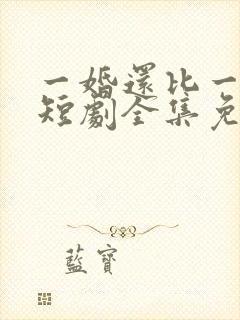 一婚還比一
短劇全集免
藍寶